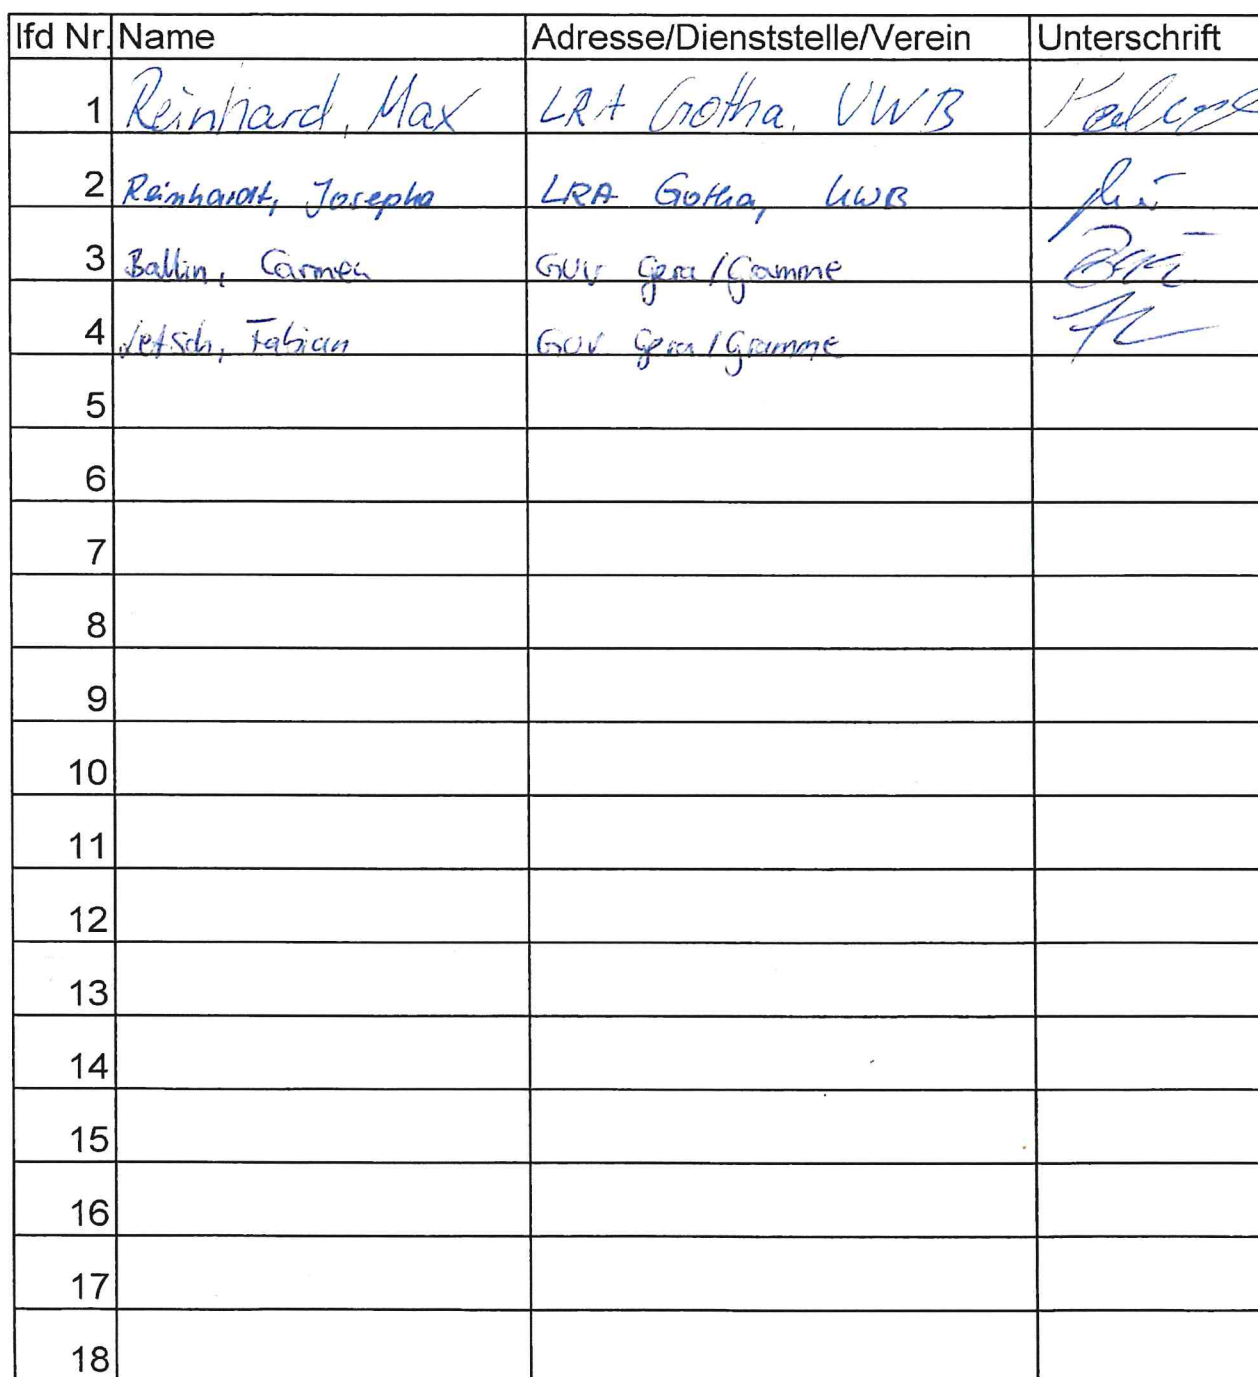 lfd Nr. Name Adresse/Dienststelle/Verein Unterschrift
1 Reinhard, Max LRA Gotha, UWB
2 Reinhardt, Josepha LRA Gotha, UWB
3 Ballin, Carmen GUV Gera/Gramme
4 Jetsch, Fabian GUV Gera/Gramme
5
6
7
8
9
10
11
12
13
14
15
16
17
18